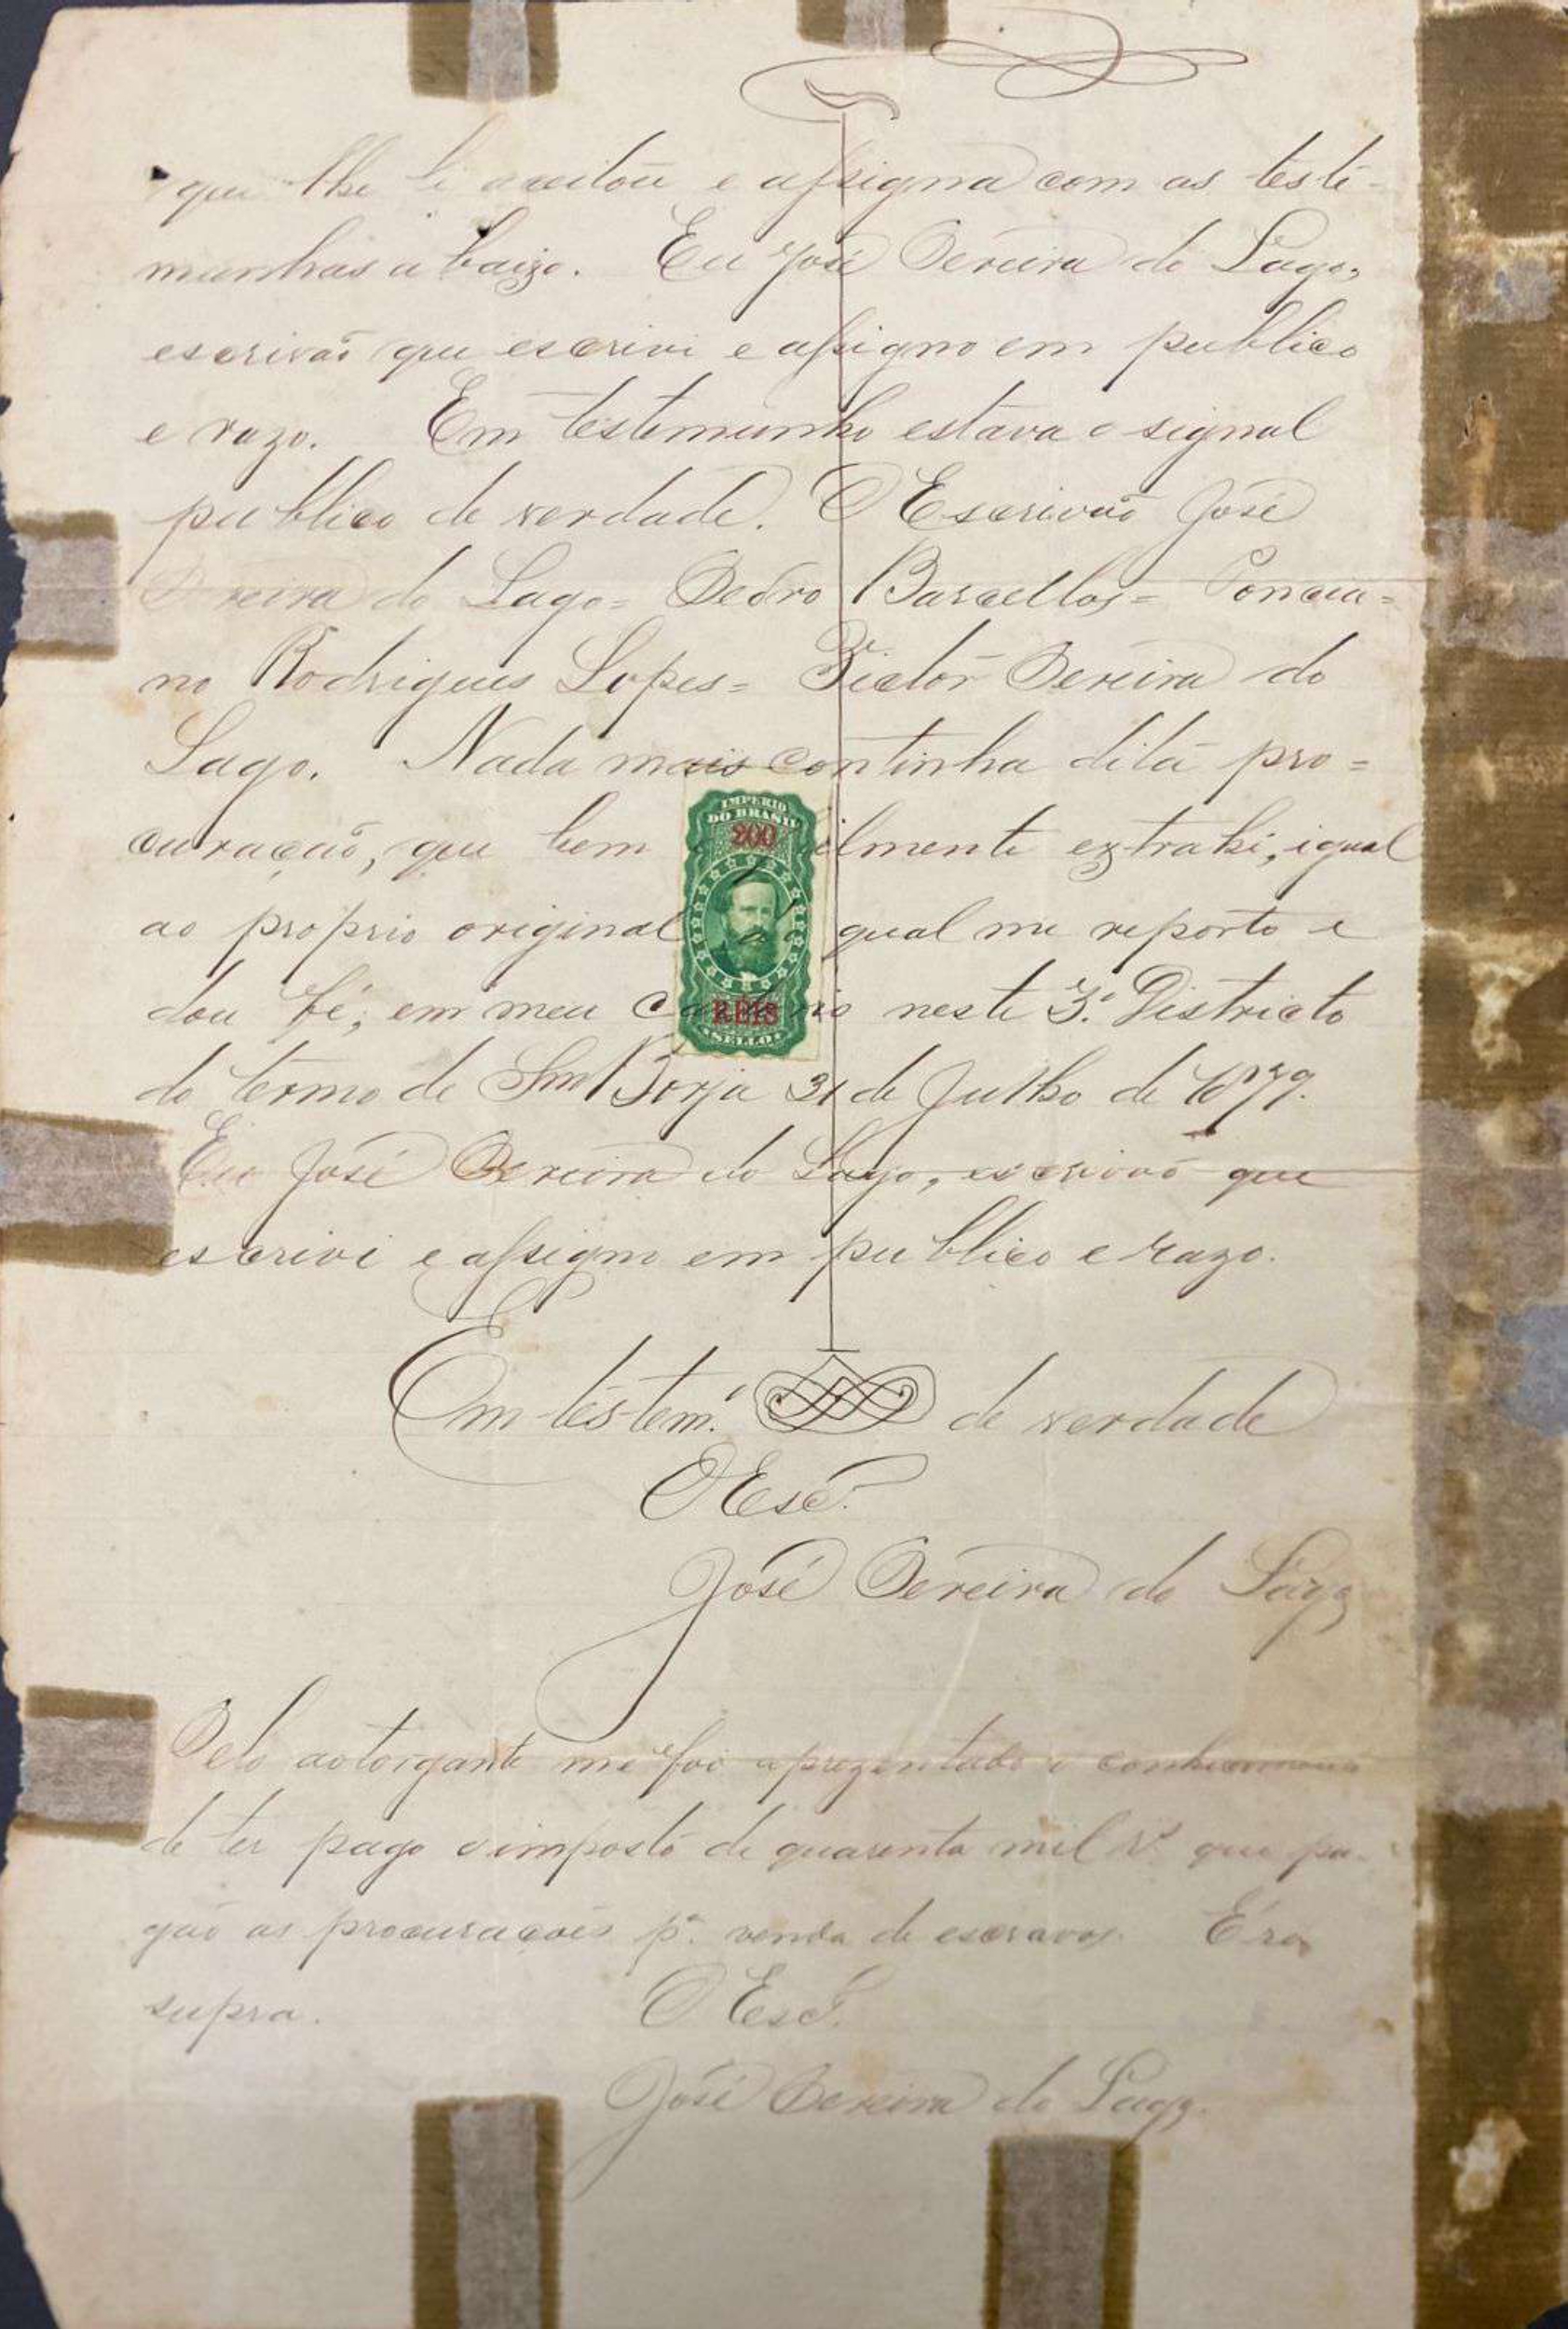 que lhe li aceitou e assigna com as teste-
munhas a baixo. Eu José Pereira do Lago,
escrivaõ que escrivi e assigno em publico
e razo. Em testemunho estava o signal
publico de verdade. O Escrivaõ José
Pereira do Lago= Pedro Barcellos= Poncia=
no Rodrigues Lopes= Victor Pereira do
Lago. Nada mais continha dita pro=
curaçaõ, que bem e filmente extrahi, igual
ao proprio original ao qual me reporto e
dou fé, em meu cartorio neste 3.º Districto
do termo de Sm Borja 31 de Julho de 1879.
Eu José Pereira do Lago, escrivaõ que
escrivi e assigno em publico e razo.
IMPERIO
DO BRASIL
200
REIS
SELLO
Em testem.º de verdade
O Esc.m
José Pereira do Lago
Pelo aotorgante me foi aprezentado o
de ter pago o imposto de quarenta mil r.s que pa-
gaõ as procuraçoẽs p.a venda de escravos. Éra
supra. O Esc.m
José Pereira do Lago.